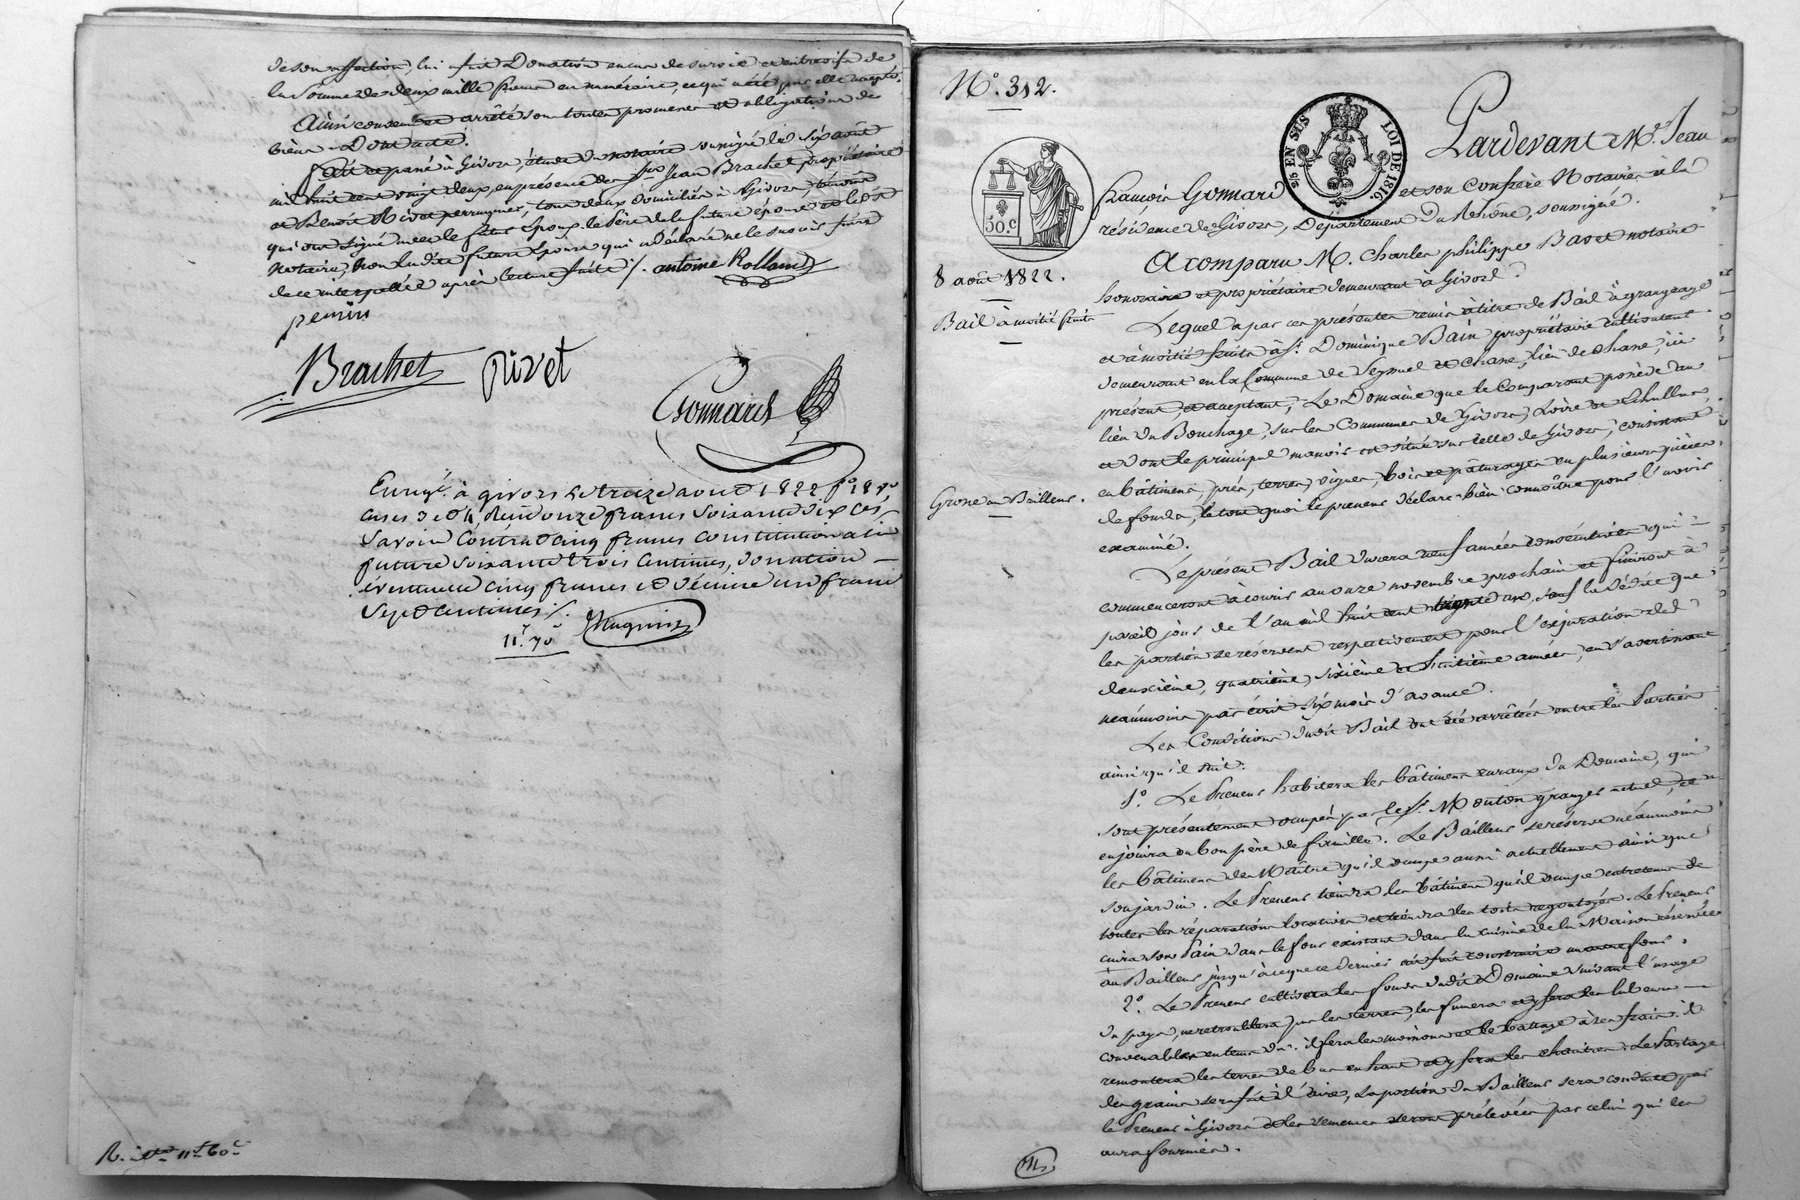 de son affection, lui fait Donation en cas de survie et entrevifs de
la Somme de deux mille francs en numéraire, ce qui a été par elle accepté.
Ainsi convenu et arrêté sous toutes promesses et obligations de
biens. Dont acte.
Fait et passé à Givors, étude du notaire soussigné le six août
mil huit cent vingt deux, en présence des Srs Jean Brachet propriétaire
et Benoit Rivet perruquier, tous deux domiciliés à Givors, témoins
qui ont signé avec le futur époux, le père de la future épouse et le dit
notaire, non la dite future épouse qui a déclaré ne le savoir faire
de ce interpellée après lecture faite ./. antoine Rolland
perrin
Brachet rivet
Gonnard
Enregé. à givors le treize aout 1822 fo. 18
cases 3 et 4, Reçu onze francs soixante dix cs
savoir contrat cinq francs constitution à la
future soixante trois centimes, donation
éventuelle cinq francs et décime un franc
sept centimes ./.
11f. 70c
Huguin
R. 11f 60c
No. 312.
S/S EN SUS LOI DE 1816.
50.c
8 août 1822.
Bail à moitié fruits
Grosse au Bailleur.
Pardevant Me. Jean
François Gonnard et son Confrère Notaires à la
résidence de Givors, Département du Rhône, soussigné.
A comparu M. Charles philippe Baset notaire
honoraire et propriétaire demeurant à Givors.
Lequel a par ces présentes remis à titre de Bail à grangeage
et à moitié fruits à Sr. Dominique Bain propriétaire cultivateur
demeurant en la Commune de Seyssuel et Chane, lieu de Chane, ici
présent, et acceptant, Le Domaine que le Comparant possède au
lieu du Bouchage, sur les Communes de Givors, Loire et Echallas,
et dont le principal manoir est situé sur celle de Givors, consistant
en bâtimens, prés, terres, vignes, bois et pâturages en plusieurs pièces
de fonds, le tout quoi le preneur déclare bien connoître pour l'avoir
examiné.
Le présent Bail durera neuf années consécutives qui
commenceront à courir au onze novembre prochain et finiront à
pareil jour de l'an mil huit cent trente un, sauf la dédite que
les parties se réservent respectivement pour l'expiration des
deuxième, quatrième, sixième et huitième années, en s'avertissant
néanmoins par écrit six mois d'avance.
Les Conditions dudit Bail ont été arrêtées entre les Parties
ainsi qu'il suit.
1o. Le Preneur habitera les bâtimens ruraux du Domaine, qui
sont présentement occupés par le Sr. Mouton granger actuel, et
en jouira en bon père de famille. Le Bailleur se réserve néanmoins
les bâtimens de Maître qu'il occupe aussi actuellement ainsi que
son jardin. Le Preneur tiendra les bâtimens qu'il occupe entretenus de
toutes les réparations locatives et tiendra les toits regoutoyés. Le Preneur
cuira son Pain dans le four existant dans la cuisine de la Maison réservée
au Bailleur jusqu'à ce que ce dernier ait fait construire un autre four.
2o. Le Preneur cultivera les fonds dudit Domaine suivant l'usage
du pays, ne retroublera pas les terres, les fumera et y fera les labeurs
convenables en tems dû. il fera les moissons et le battage à ses frais. il
remontera les terres de bas en haut et y fera les chaintres. Le Partage
des grains sera fait à l'aire, la portion du Bailleur sera conduite par
le Preneur à Givors et les semences seront prélevées par celui qui les
aura fournies.